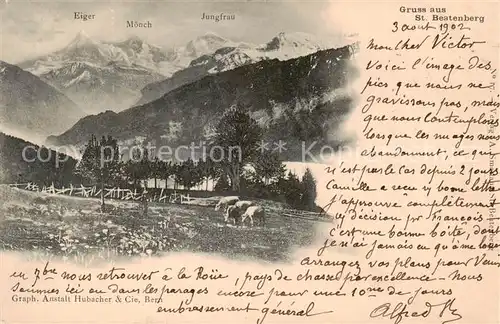 Eiger
Mönch
Jungfrau
Gruss aus
St. Beatenberg
3 août 1902
Mon cher Victor
Voici l'image des
pics, que nous ne
gravissons pas, mais
que nous contemplons
lorsque les nuages nous
abandonnent, ce qui
n'est pas le cas depuis 2 jours
Camille a reçu ta bonne lettre
J'approuve complètement
ta décision par François
d'une bonne boîte, dont
je n'ai jamais eu qu'à me louer
Arranges vos plans pour Venir
en 7bre nous retrouver à la pays de chasse par excellence - Nous
sommes ici ou dans les parages encore pour une 10ne de jours
embrassement général
Alfred
Graph. Anstalt Hubacher & Cie, Bern
copyright